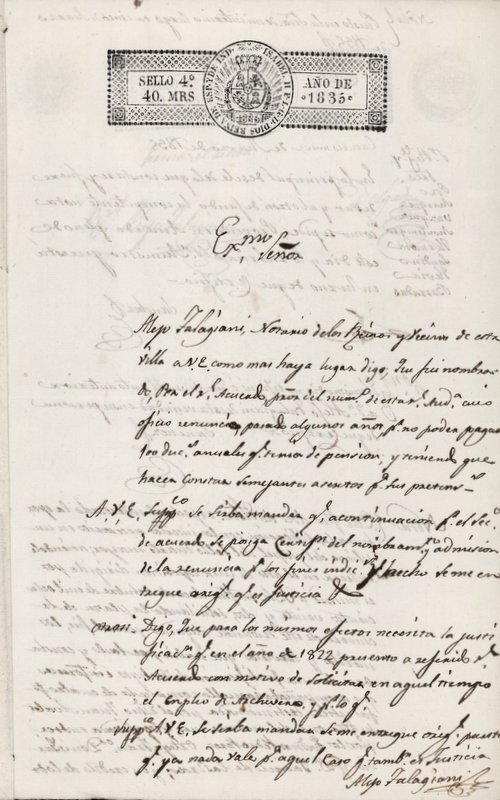 SELLO 4º
40. MRS
AÑO DE
1835
Exmo
Señor
Alejo Falagiani, Notario de los Reinos y Vecino de esta
Villa a V.E. como mas haya lugar digo, Que fui nombra-
do, Por el rl. Acuerdo, pror. del numo. de esta rl. Auda. cuio
oficio renuncié, pasado algunos años pr. no poder pagar
100 ducs. anuales qe. tenia de pension, y teniendo que
hacer constar semejantes asertos pa. sus pretens.s
A V.E. suppco. se sirba mandar qe. a continuacion pr. el Seco.
de acuerdo se ponga Certifon. del nombramto. y admision
de la renuncia pa. los fines indicos. y hecho se me en-
tregue origl. qe. es Justicia &
Otrosi Digo, Que para los mismos efectos necesita la justi
ficacon. qe. en el año de 1822 presentó a referido rl.
Acuerdo con motivo de solicitar en aquel tiempo
el empleo de Archivero, y pr. lo qe.
Suppco. A V.E. se sirba mandar se me entregue origl. puesto
qe. ya nada vale pa. aquel caso qe. tambn. es Justicia
Alejo Falagiani